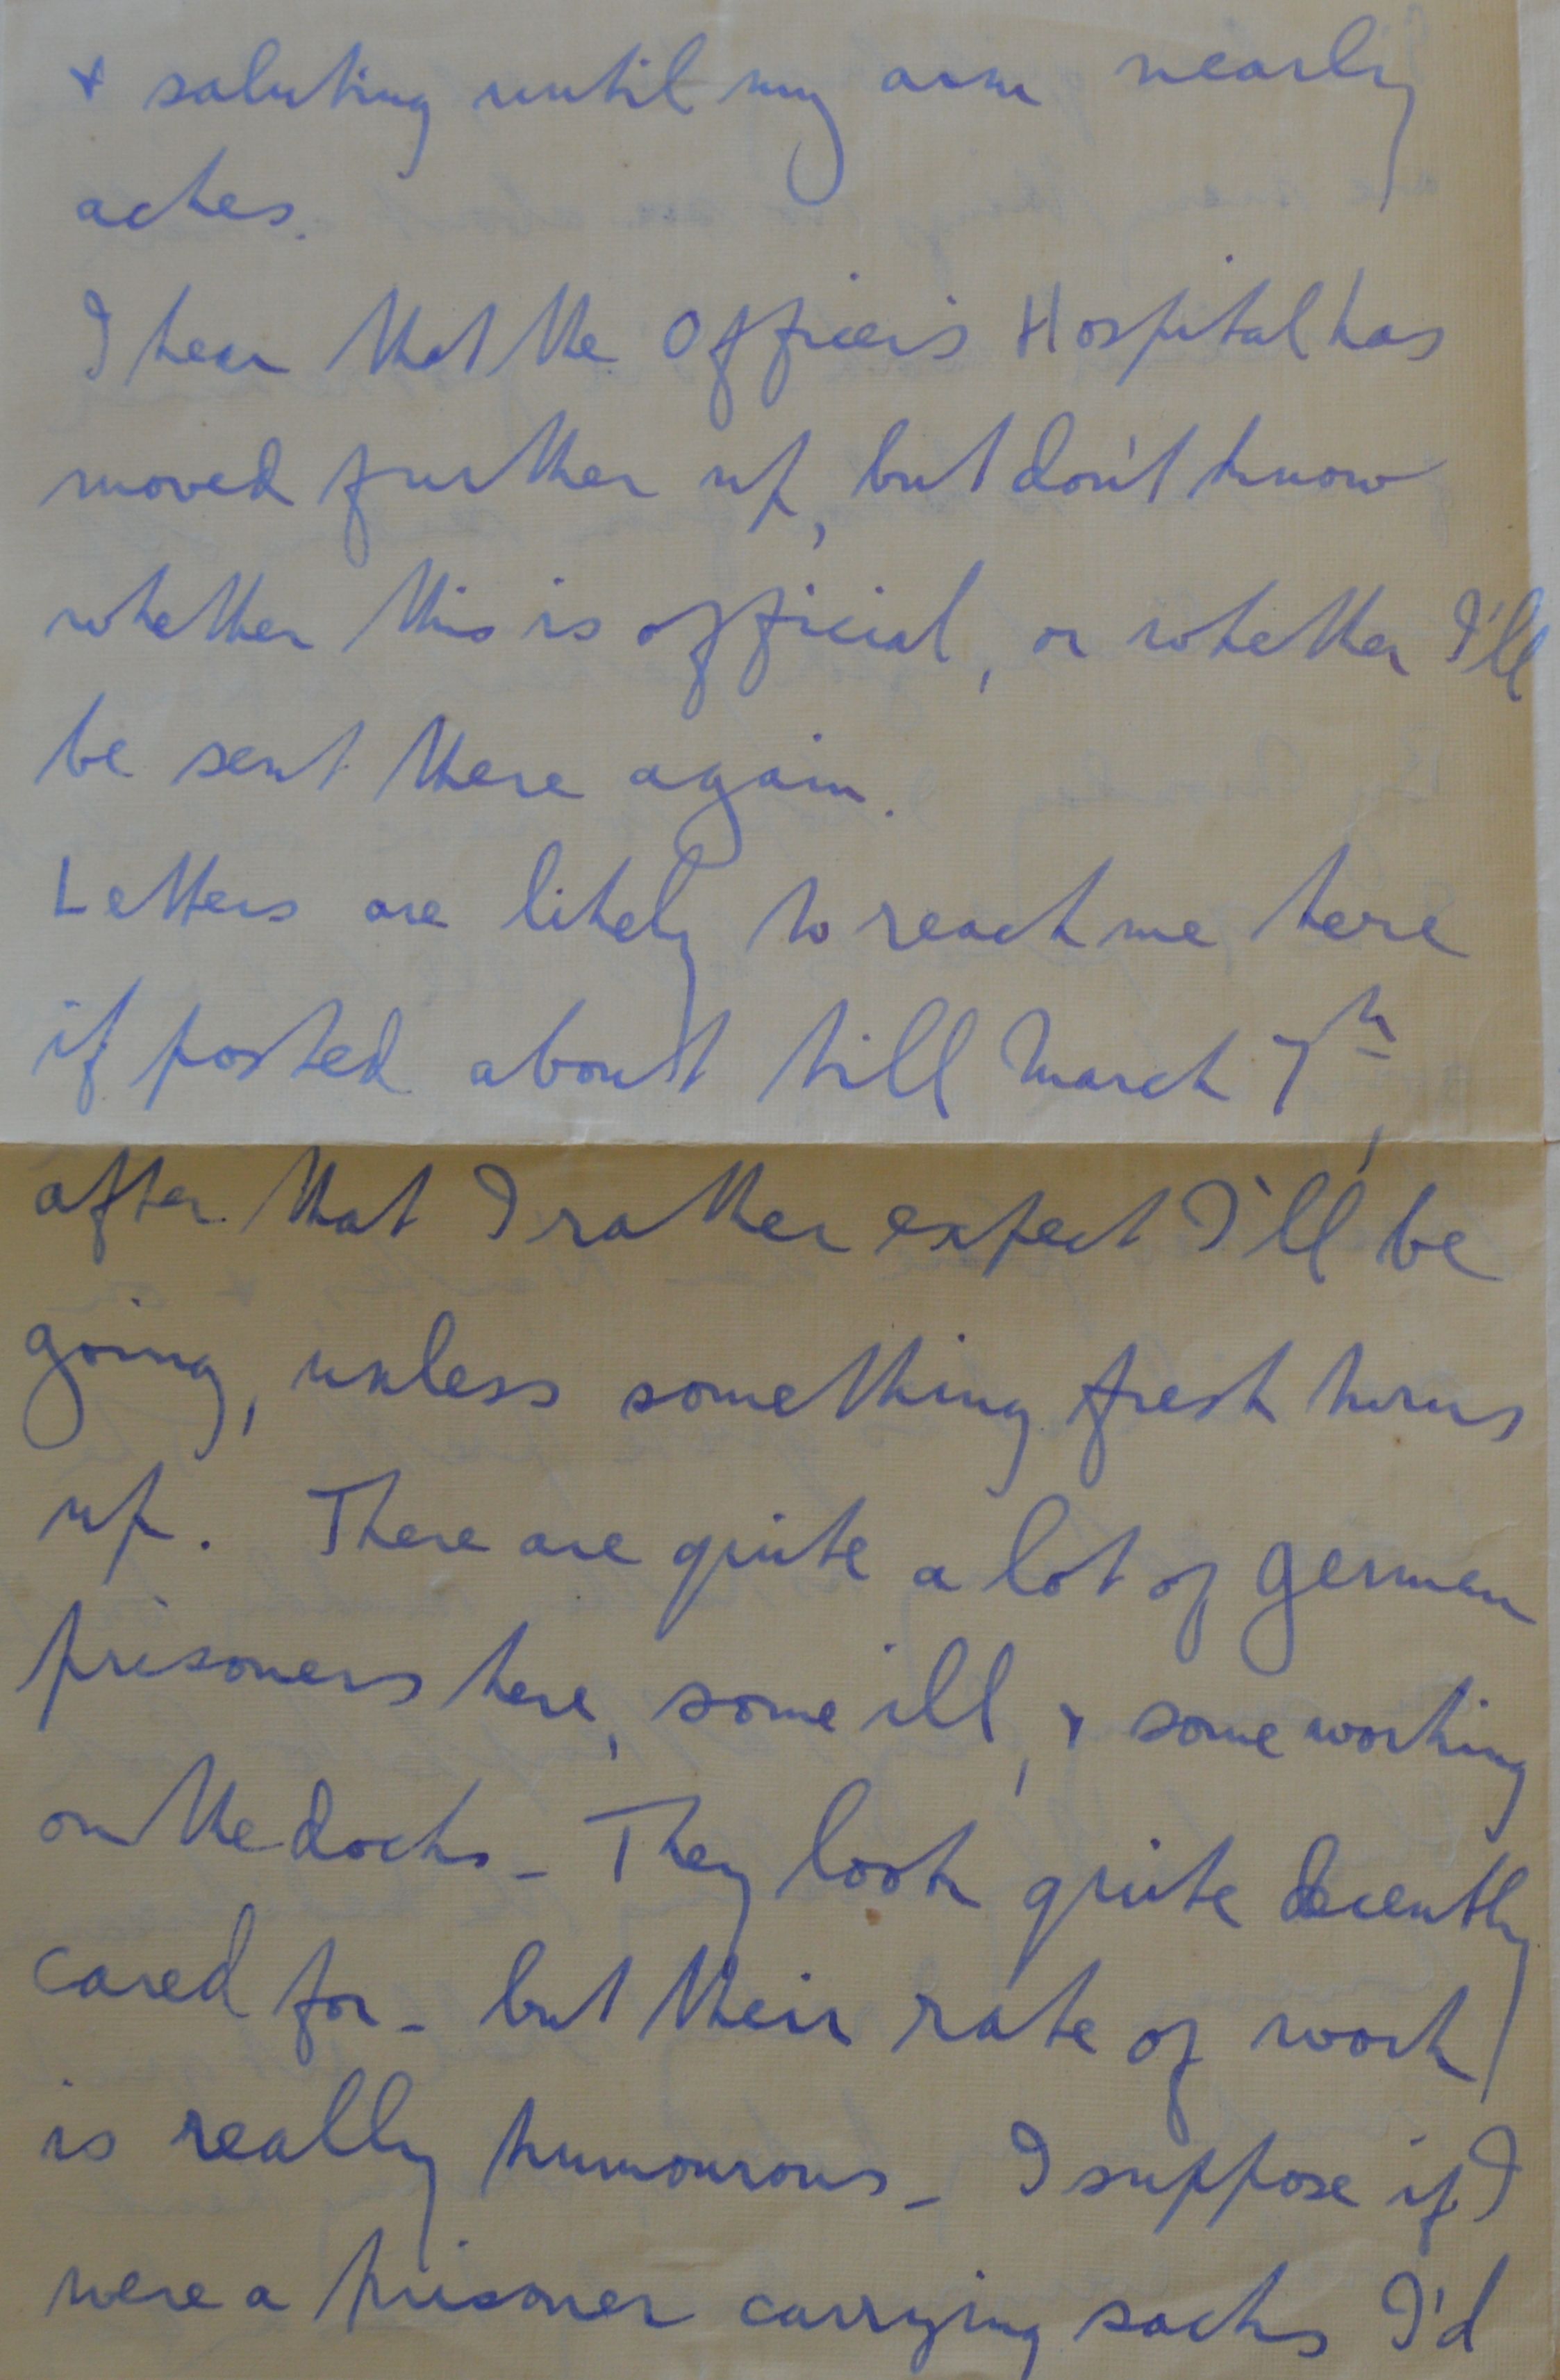 & saluting until my arm nearly
aches.
I hear that the Officer's Hospital has
moved further up, but don't know
whether this is official, or whether I'll
be sent there again.
Letters are likely to reach me here
if posted about till March 7th,
after that I rather expect I'll be
going, unless something fresh turns
up. There are quite a lot of German
prisoners here, some ill, & some working
on the docks - They look quite decently
cared for - but their rate of work
is really humourous - I suppose if I
were a prisoner carrying sacks I'd